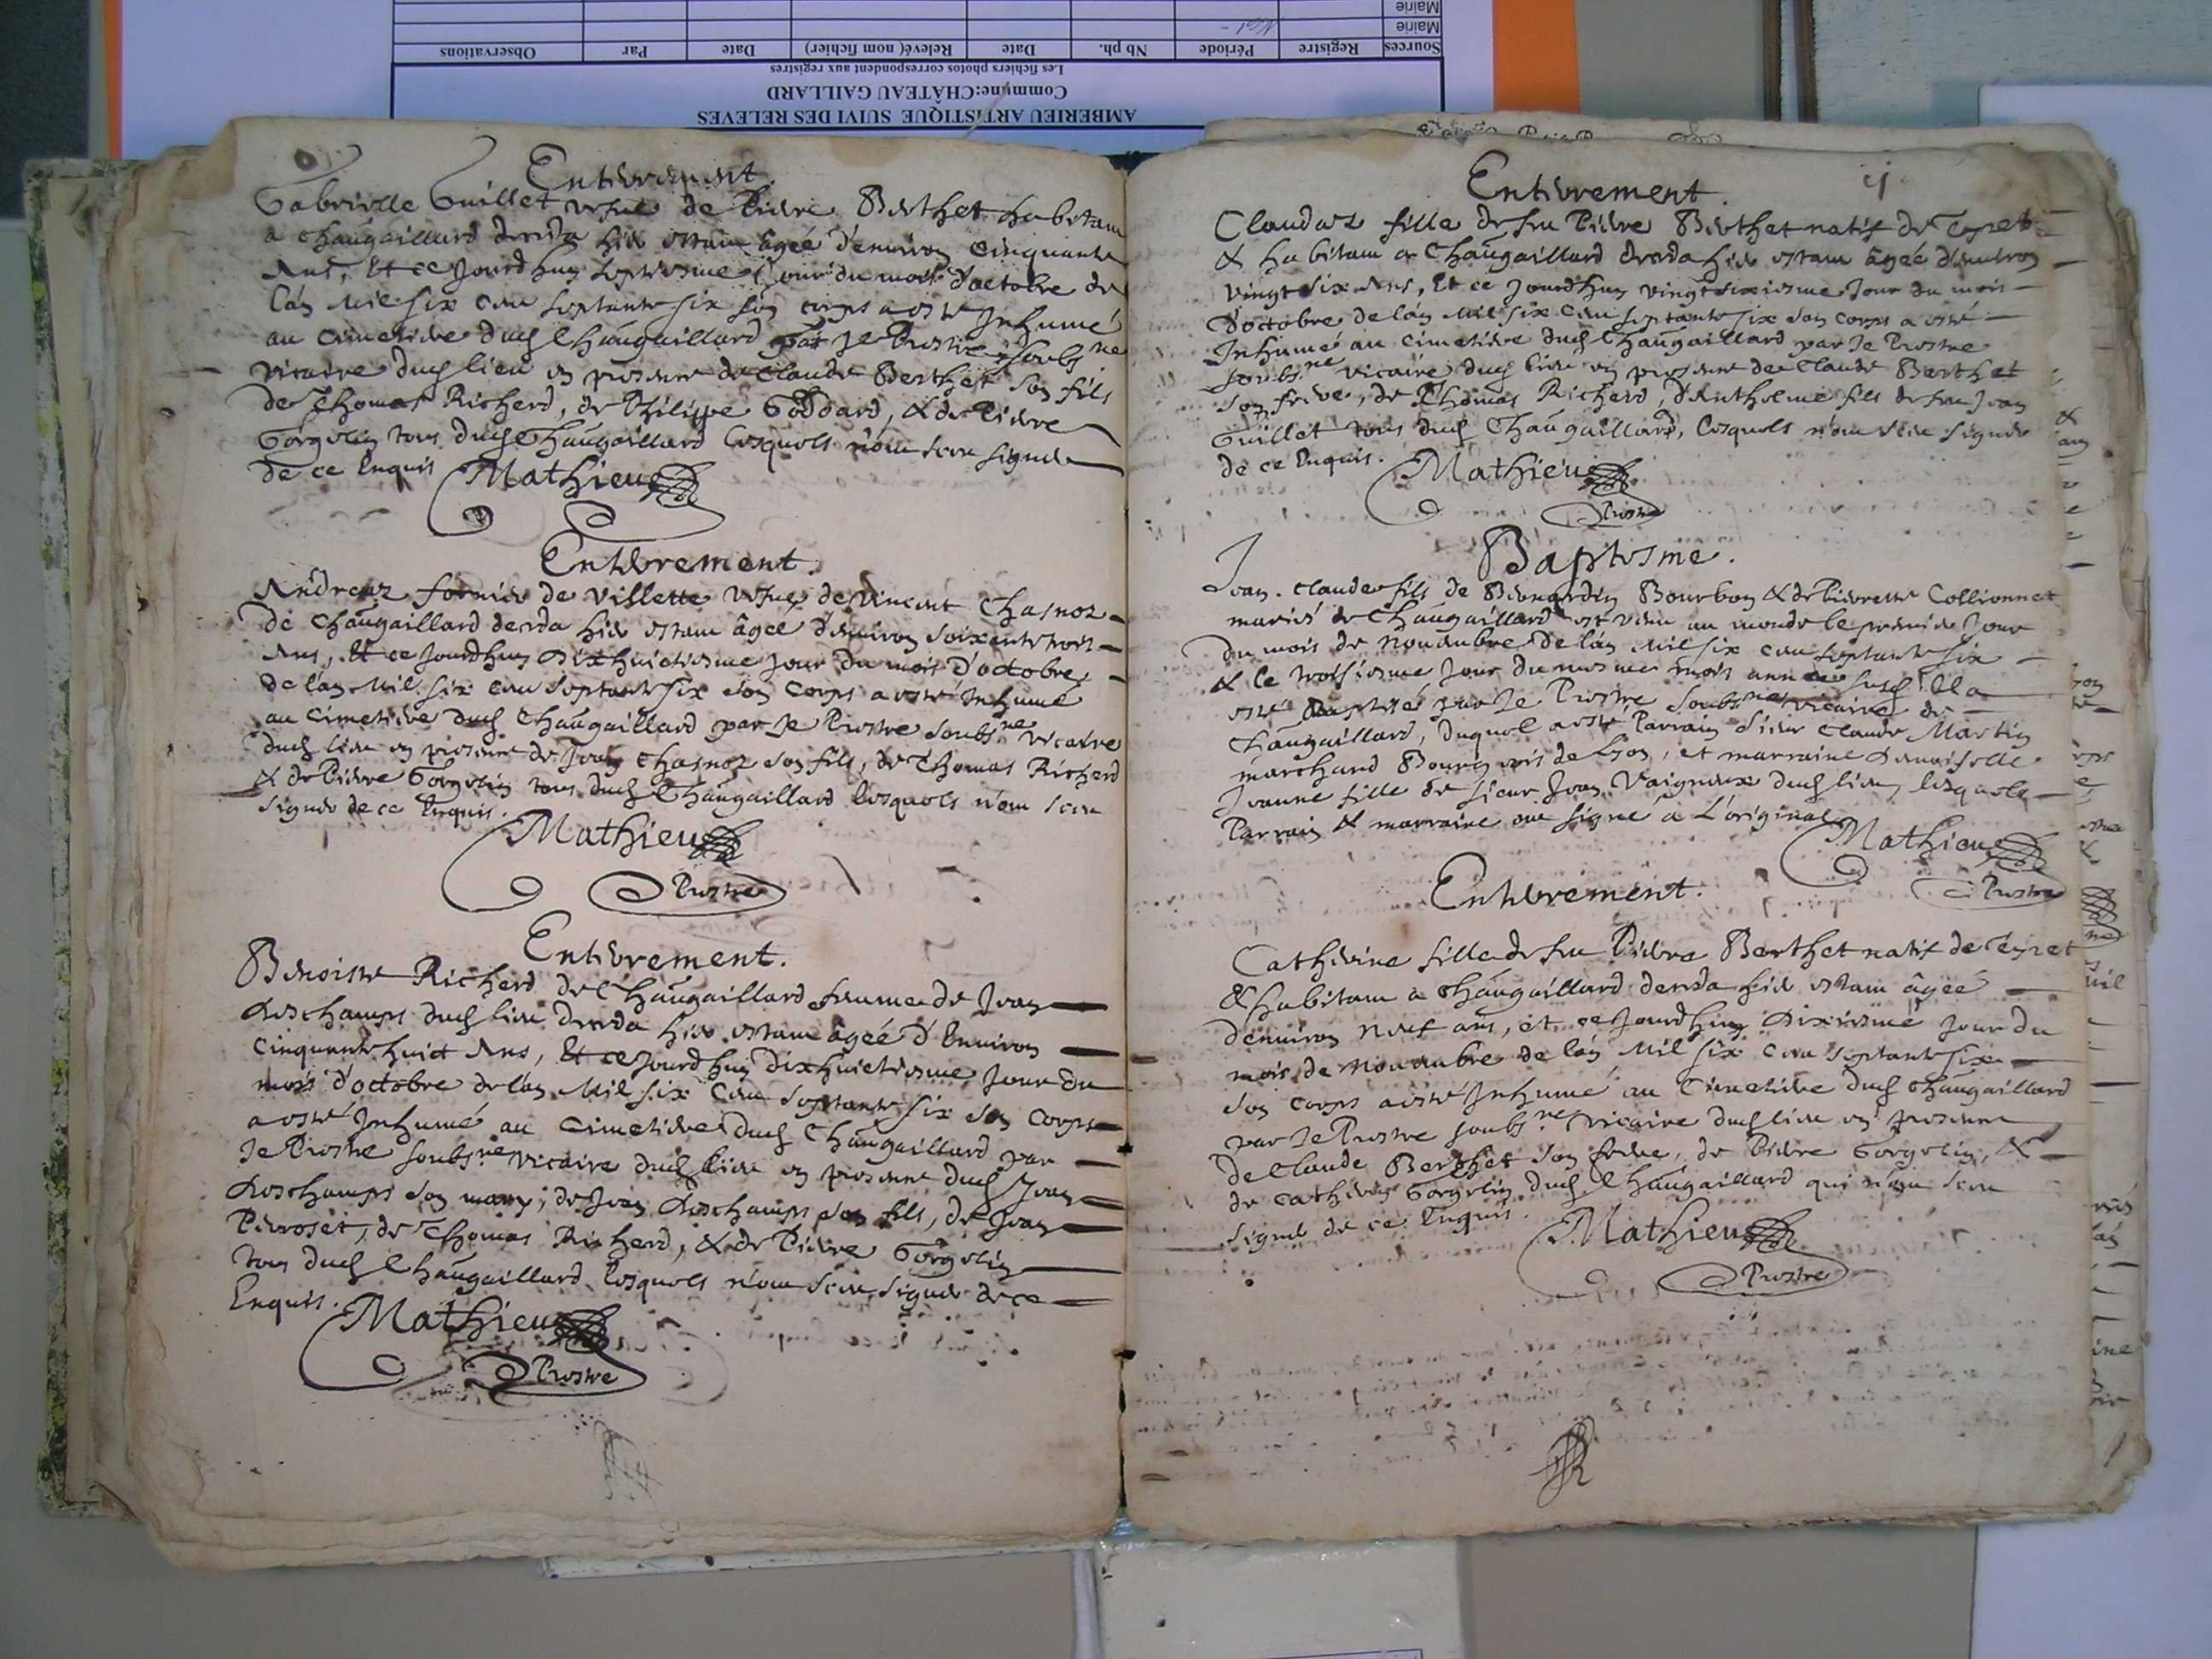 AMBERIEU ARTISTIQUE SUIVI DES RELEVES
Commune:CHÂTEAU GAILLARD
Les fichiers photos correspondent aux registres
Sources Registre Période Nb ph. Date Relevé( nom fichier) Date Par Observations
Mairie
Mairie
Enterrement.
Gabrielle Guillet vefue de Pierre Berthet habitant
a Chaugaillard deceda hier estant âgeé d'enuiron Cinquante
Ans, Et ce Jourd'huy septiesme Jour du mois d'octobre de
l'an Mil six cent septante six son corps a esté Inhumé
au Cimetiere dud Chaugaillard par Je Prestre soubsne
vicaire dud lieu en presence de Claude Berthet son fils
de Thomas Richerd, de Philippe Goddard, & de Pierre
Gorgelin tous dud Chaugaillard lesquels n'ont sceu signer
de ce Enquis Mathieu
Enterrement.
Andreaz fornier de Villette vefue de Vincent Chasnoz
de Chaugaillard deceda hier estant âgeé d'enuiron soixante trois
Ans, Et ce Jourdhuy dixhuictiesme Jour du mois d'octobre
de l'an Mil six cent septante six son corps a esté Inhumé
au Cimetiere dud Chaugaillard par Je Prestre soubsne vicaire
dud lieu en presence de Jean Chasnoz son fils, de Thomas Richerd
& de Pierre Gorgelin tous dud Chaugaillard lesquels n'ont sceu
signer de ce Enquis.
Mathieu
Prestre
Enterrement.
Benoiste Richerd de Chaugaillard femme de Jean
deschamps dud lieu deceda hier estant âgeé d'Enuiron
Cinquante huict Ans, Et ce Jourd'huy dixhuictiesme Jour du
mois d'octobre de l'an Mil six Cent septante six son Corps
a esté Inhumé au Cimetiere dud Chaugaillard par
Je Prestre soubsne vicaire dud lieu en presence dud Jean
deschamps son mary, de Jean deschamps son fils, de Jean
Perroset, de Thomas Richerd, & de Pierre Gorgelin
tous dud Chaugaillard lesquels n'ont sceu signer de ce
Enquis. Mathieu
Prestre
Enterrement.
Claudaz fille de feu Pierre Berthet natif de
& habitant a Chaugaillard deceda hier estant âgeé d'enuiron
vingt six Ans, Et ce Jourdhuy vingt sixiesme Jour du mois
d'octobre de l'an Mil six Cent septante six son corps a esté
Inhumé au cimetiere dud Chaugaillard par Je Prestre
soubsne vicaire dud lieu en presence de Claude Berthet
son frere, de Thomas Richerd, d'Anthelme fils de feu Jean
Guillet tous dud Chaugaillard, lesquels n'ont sceu signer
de ce Enquis. Mathieu
Prestre
Baptesme.
Jean. Claude fils de Bernardin Bourbon & de Pierrette Collionnet
mariés de Chaugaillard est venu au monde le premier Jour
du mois de Nouembre de l'an Mil six cent septante six
& le troisiesme Jour du mesme mois année susd Il a
esté Baptisé par Je Prestre soubsne vicaire de
Chaugaillard, duquel a esté Parrain sieur Claude Martin
marchand Bourgeois de Lyon, et marraine damoiselle
Jeanne fille de sieur Jean Vaigneux dud lieu, lesquels
Parrain & marraine ont signé a L'original
Mathieu
Prestre
Enterrement.
Catherine fille de feu Pierre Berthet natif de
& habitant a Chaugaillard deceda hier estant âgeé
d'enuiron neuf ans, et ce Jourd'huy dixiesme Jour du
mois de Nouembre de l'an Mil six Cent septante six
son corps a esté Inhumé au Cimetiere dud Chaugaillard
par Je Prestre soubsne vicaire dud lieu en presence
de Claude Berthet son frere, de Pierre Gorgelin, &
de Catherin Gorgelin dud Chaugaillard qui n'ont sceu
signer de ce Enquis.
Mathieu
Prestre